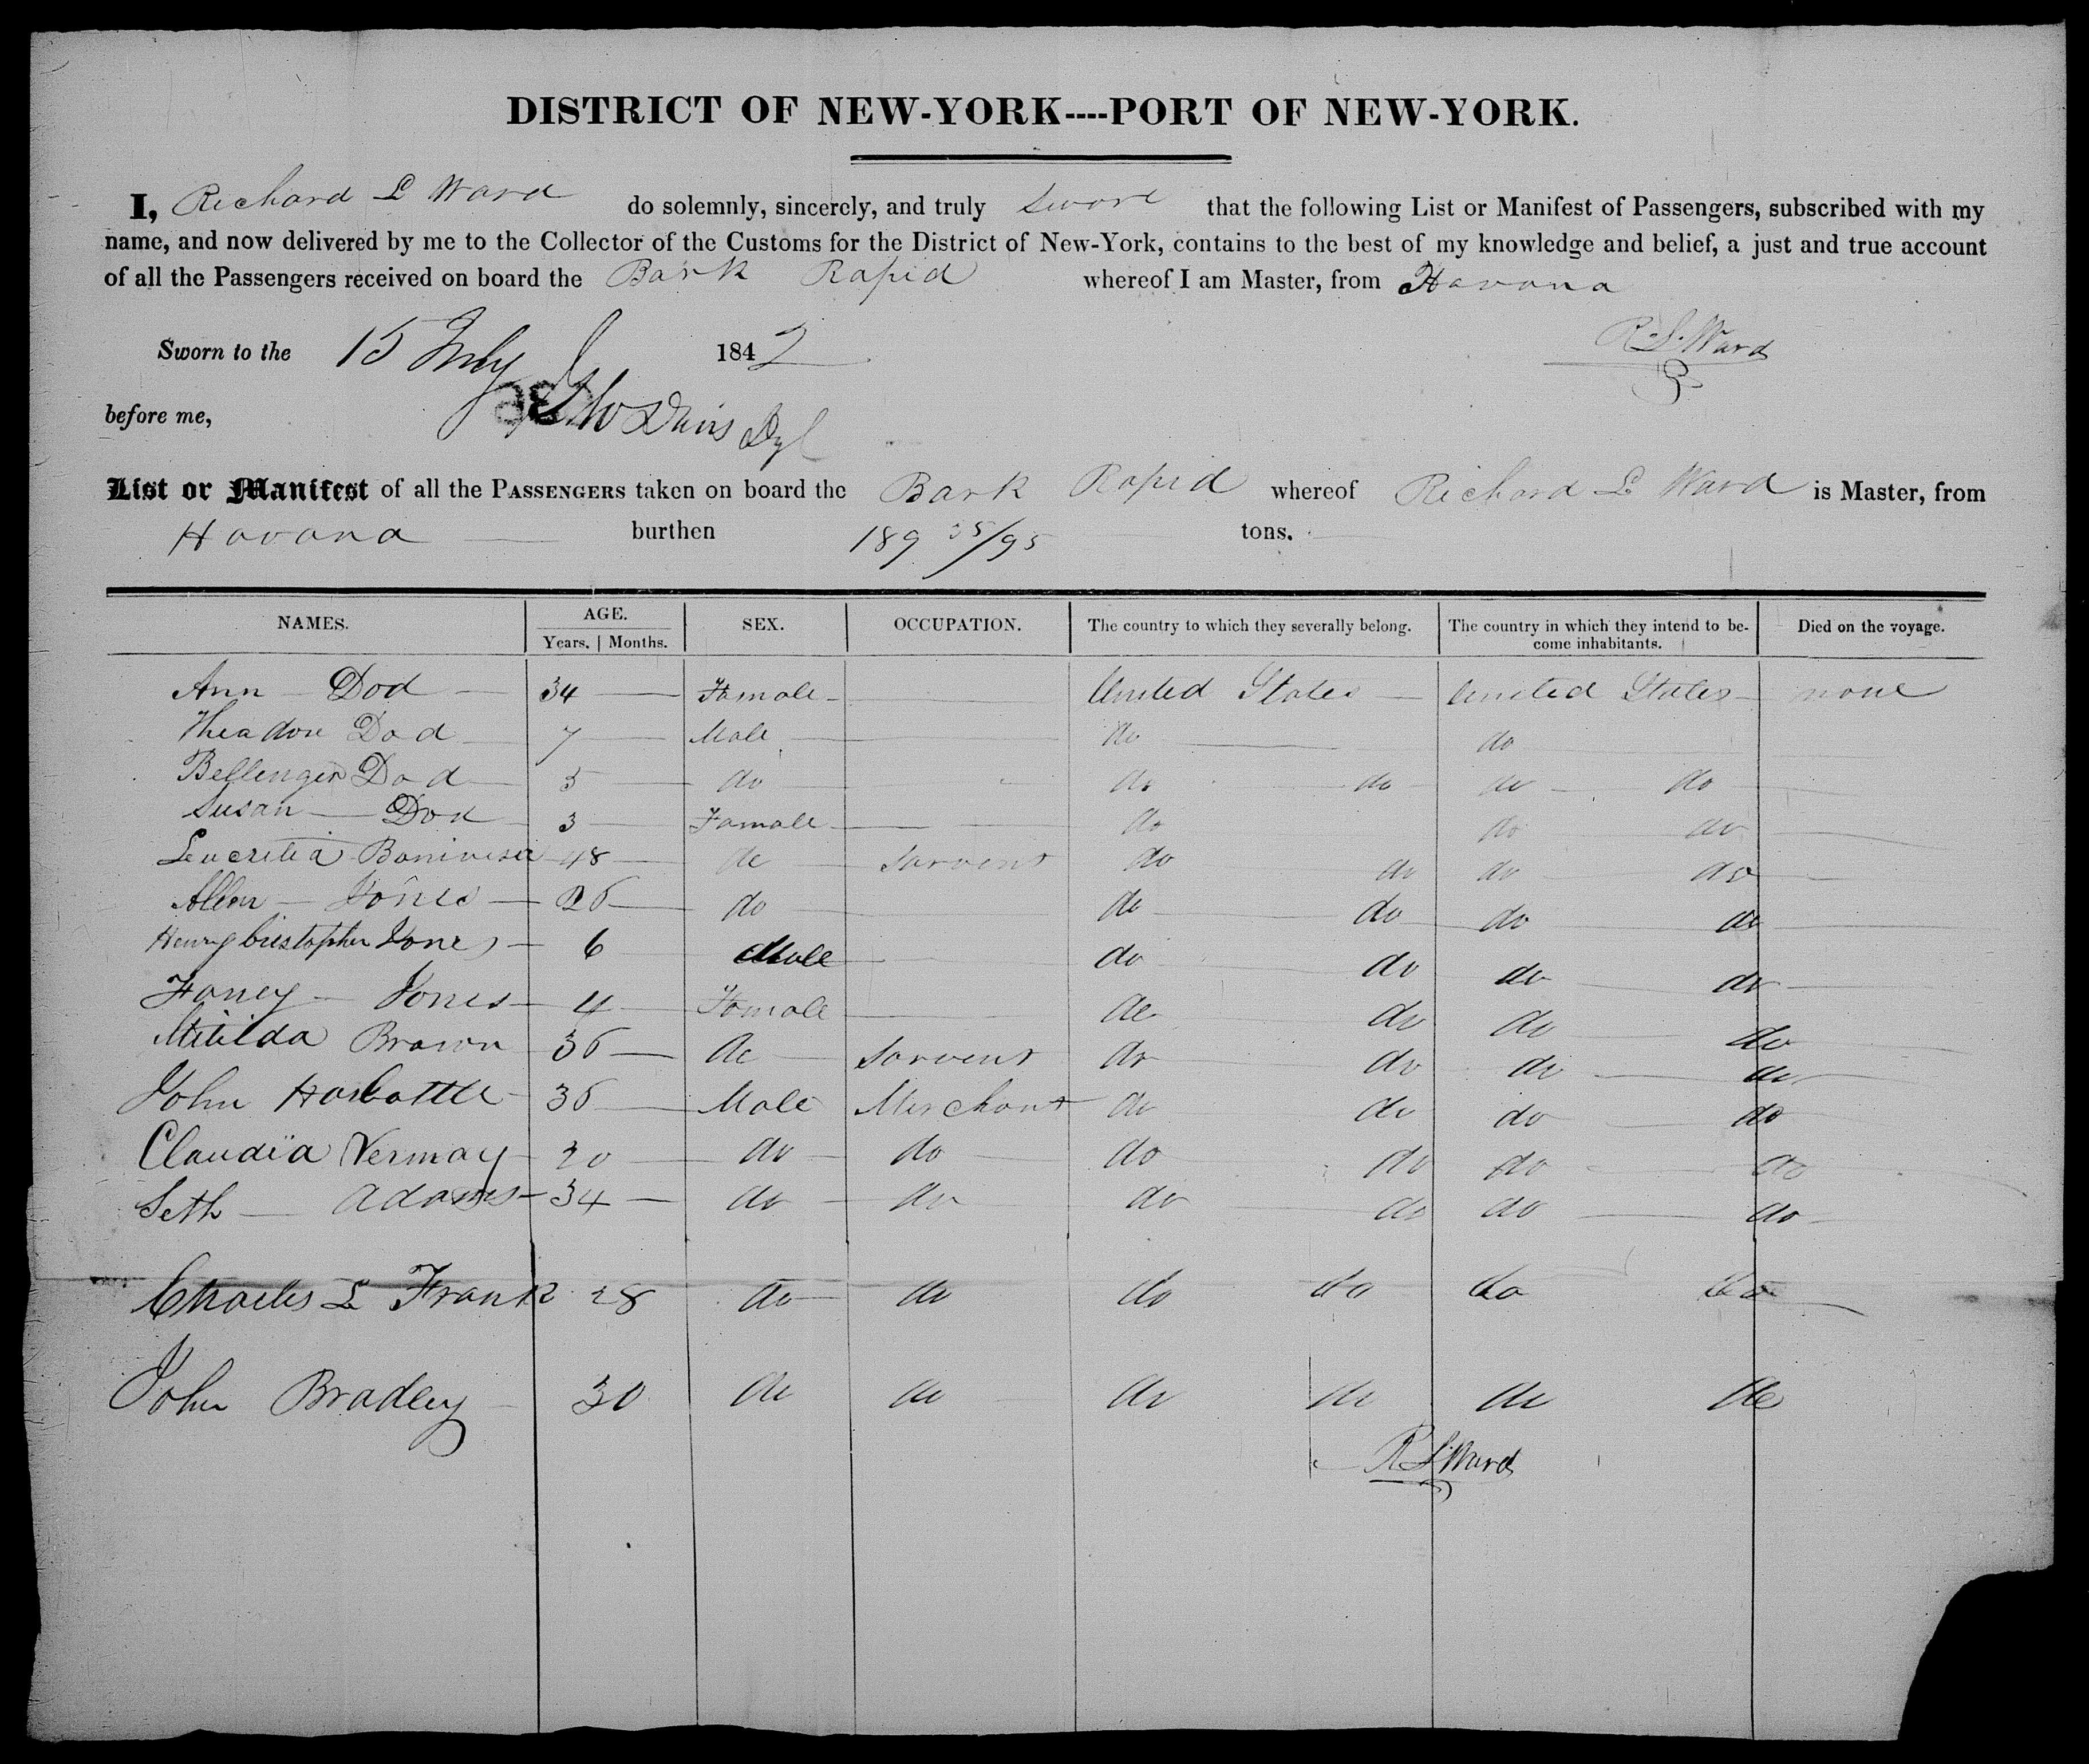 DISTRICT OF NEW-YORK----PORT OF NEW-YORK.
I, Richard L Ward do solemnly, sincerely, and truly Swore that the following List or Manifest of Passengers, subscribed with my
name, and now delivered by me to the Collector of the Customs for the District of New-York, contains to the best of my knowledge and belief, a just and true account
of all the Passengers received on board the Bark Rapid whereof I am Master, from Havana
Sworn to the 15 July 1842 R. L. Ward
before me, Davis
List or Manifest of all the PASSENGERS taken on board the Bark Rapid whereof Richard L Ward is Master, from
Havana burthen 189 35/95 tons.
NAMES. AGE. SEX. OCCUPATION. The country to which they severally belong. The country in which they intend to be- Died on the voyage.
Years. | Months. come inhabitants.
Ann Dod 34 Famale United States United States none
Theadore Dod 7 Male do do
Bellenger Dod 5 do do do do do
Susan Dod 3 Famale do do do
Leucretia 48 do Sarvent do do do do
Allen Jones 26 do do do do do
Henry Cristopher Jones 6 Male do do do do
Faney Jones 4 Famale do do do do
Mitilda Brown 36 do Sarvent do do do do
John Harbottle 36 Male Merchant do do do do
Claudïa Vermay 20 do do do do do do
Seth Adams 34 do do do do do do
Charles L Frank 28 do do do do do do
John Bradley 30 do do do do do do
R L Ward